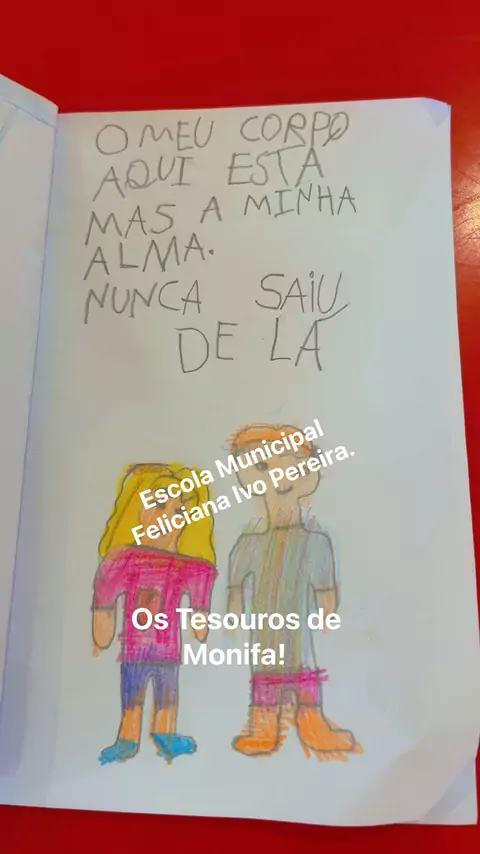 O MEU CORPO
AQUI ESTÁ
MAS A MINHA
ALMA.
NUNCA SAIU
DE LÁ
Escola Municipal
Feliciana Ivo Pereira.
Os Tesouros de
Monifa!